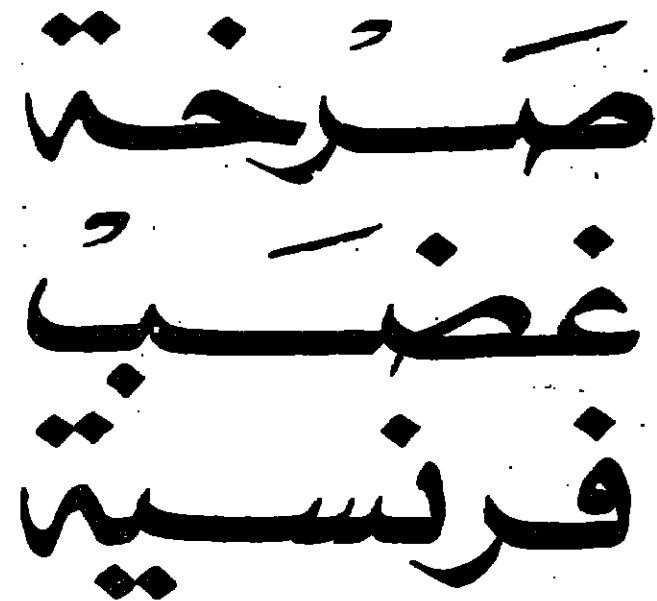 صَرْخة
غضَبْ
فرنسية